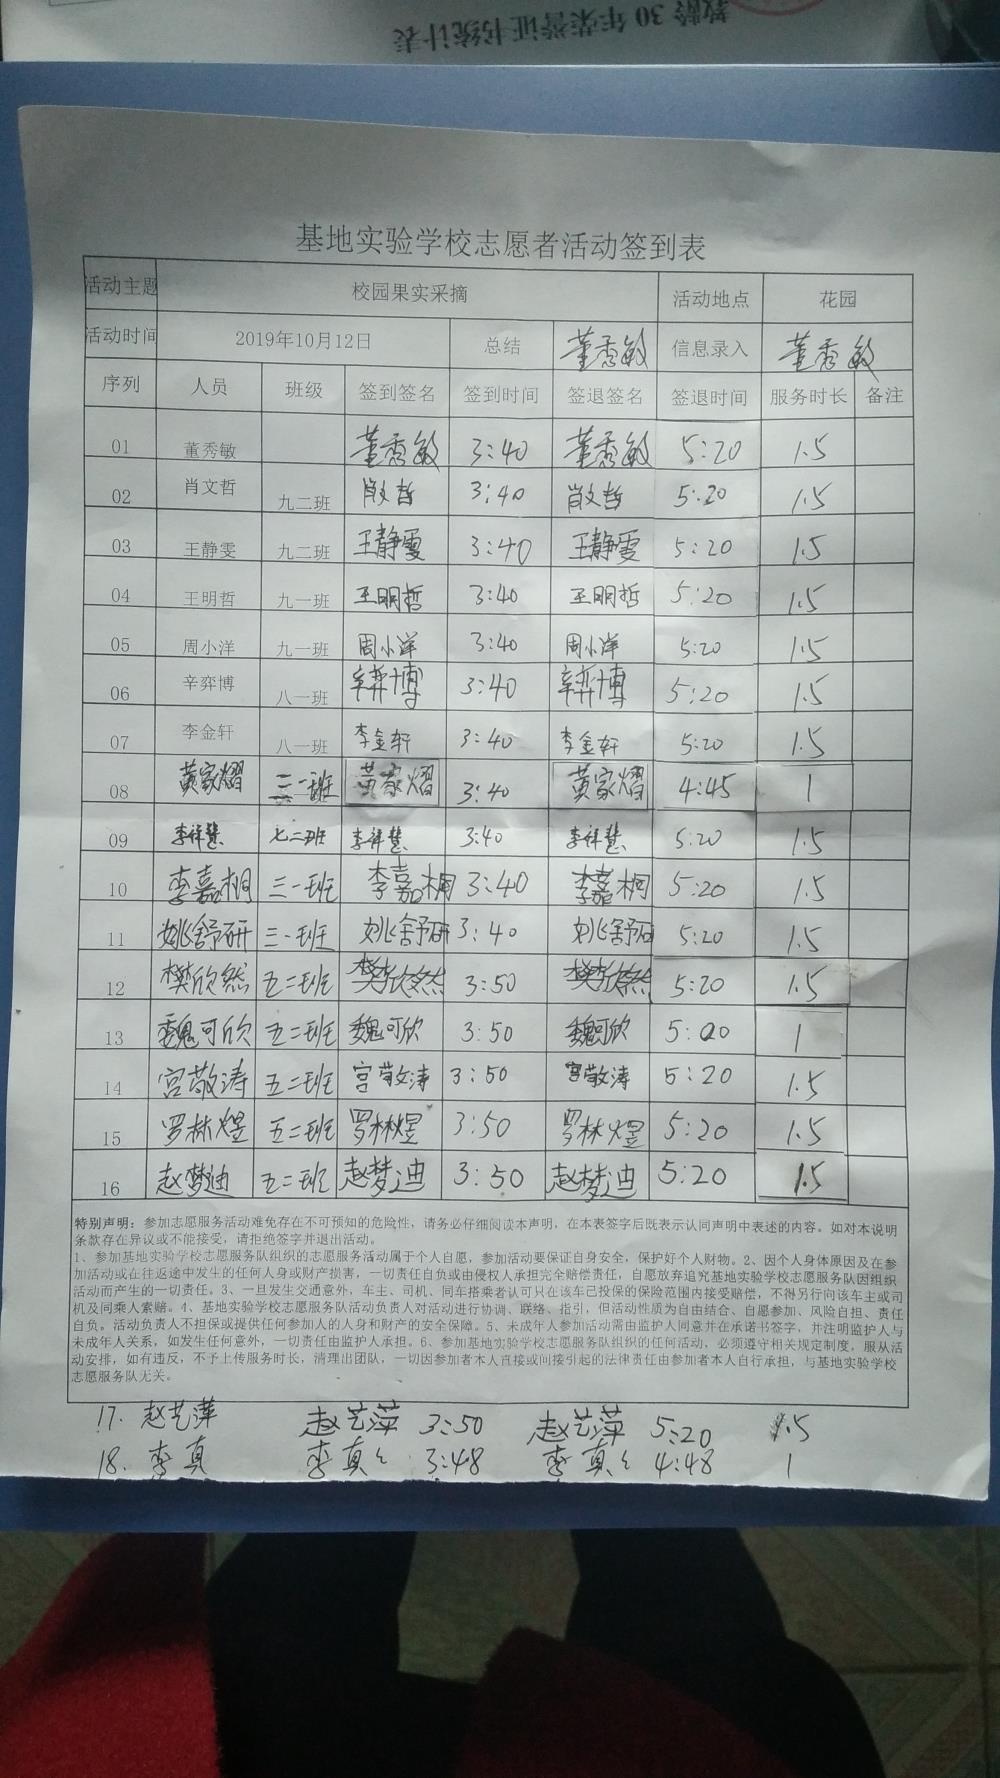 教龄 30 年荣誉证书统计表
基地实验学校志愿者活动签到表
活动主题 校园果实采摘 活动地点 花园
活动时间 2019年10月12日 总结 董秀敏 信息录入 董秀敏
序列 人员 班级 签到签名 签到时间 签退签名 签退时间 服务时长 备注
01 董秀敏 董秀敏 3:40 董秀敏 5:20 1.5
02 肖文哲 九二班 肖文哲 3:40 肖文哲 5:20 1.5
03 王静雯 九二班 王静雯 3:40 王静雯 5:20 1.5
04 王明哲 九一班 王明哲 3:40 王明哲 5:20 1.5
05 周小洋 九一班 周小洋 3:40 周小洋 5:20 1.5
06 辛弈博 八一班 辛弈博 3:40 辛弈博 5:20 1.5
07 李金轩 八一班 李金轩 3:40 李金轩 5:20 1.5
08 黄家熠 三一班 黄家熠 3:40 黄家熠 4:45 1
09 李祥慧 七二班 李祥慧 3:40 李祥慧 5:20 1.5
10 李嘉桐 三一班 李嘉桐 3:40 李嘉桐 5:20 1.5
11 姚舒研 三一班 姚舒研 3:40 姚舒研 5:20 1.5
12 樊欣然 五二班 樊欣然 3:50 樊欣然 5:20 1.5
13 魏可欣 五二班 魏可欣 3:50 魏可欣 5:00 1
14 宫敬涛 五二班 宫敬涛 3:50 宫敬涛 5:20 1.5
15 罗林煜 五二班 罗林煜 3:50 罗林煜 5:20 1.5
16 赵梦迪 五二班 赵梦迪 3:50 赵梦迪 5:20 1.5
特别声明：参加志愿服务活动难免存在不可预知的危险性，请务必仔细阅读本声明，在本表签字后既表示认同声明中表述的内容。如对本说明
条款存在异议或不能接受，请拒绝签字并退出活动。
1、参加基地实验学校志愿服务队组织的志愿服务活动属于个人自愿，参加活动要保证自身安全，保护好个人财物。2、因个人身体原因及在参
加活动或在往返途中发生的任何人身或财产损害，一切责任自负或由侵权人承担完全赔偿责任，自愿放弃追究基地实验学校志愿服务队因组织
活动而产生的一切责任。3、一旦发生交通意外，车主、司机、同车搭乘者认可只在该车己投保的保险范围内接受赔偿，不得另行向该车主或司
机及同乘人索赔。4、基地实验学校志愿服务队活动负责人对活动进行协调、联络、指引，但活动性质为自由结合、自愿参加、风险自担、责任
自负。活动负责人不担保或提供任何参加人的人身和财产的安全保障。5、未成年人参加活动需由监护人同意并在承诺书签字，并注明监护人与
未成年人关系，如发生任何意外，一切责任由监护人承担。6、参加基地实验学校志愿服务队组织的任何活动，必须遵守相关规定制度，服从活
动安排，如有违反，不予上传服务时长，清理出团队，一切因参加者本人直接或间接引起的法律责任由参加者本人自行承担，与基地实验学校
志愿服务队无关。
17. 赵艺萍 赵艺萍 3:50 赵艺萍 5:20 1.5
18. 李真 李真 3:48 李真 4:48 1